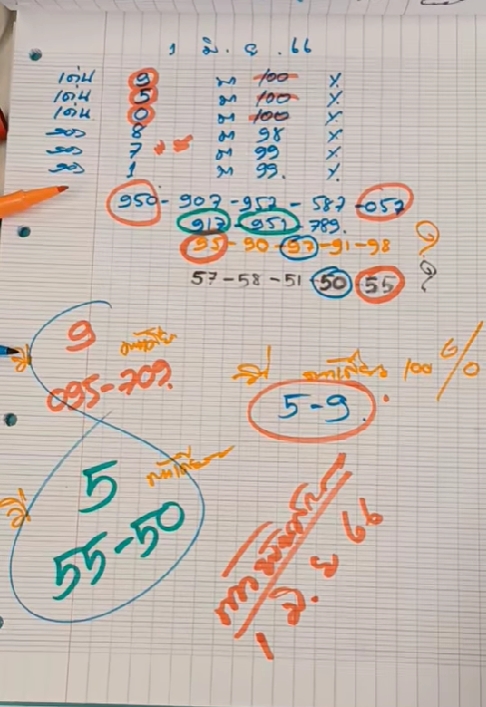 1 มิ. ย. 66
เด่น 9 มา 100 X
เด่น 5 มา 100 X
เด่น 0 มา 100 X
รอง 8 มา 98 X
รอง 7 มา 99 X
รอง 1 มา 99. X
950 - 907 - 957 - 587 - 057
917 - 951 - 789.
95 - 90 - 97 - 91 - 98
57 - 58 - 51 - 50 - 55
9
095-709.
100 %
5-9.
5
55-50
1 มิ. ย 66